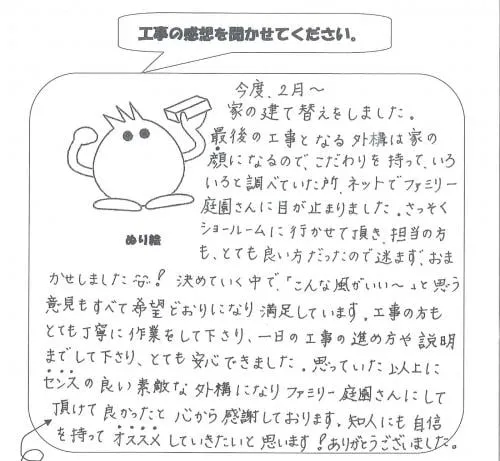 工事の感想を聞かせてください。
今度、2月〜
家の建て替えをしました。
最後の工事となる外構は家の
顔になるので、こだわりを持って、いろ
いろと調べていた所、ネットでファミリー
庭園さんに目が止まりました。さっそく
ショールームに行かせて頂き、担当の方
も、とても良い方だったので迷まず、おま
ぬり絵
かせしました! 決めていく中で、「こんな風がいい〜」と思う
意見もすべて希望どおりになり満足しています。工事の方も
とても丁寧に作業をして下さり、一日の工事の進め方や説明
までして下さり、とても安心できました。思っていた以上に
センスの良い素敵な外構になりファミリー庭園さんにして
頂けて良かったと心から感謝しております。知人にも自信
を持ってオススメしていきたいと思います!ありがとうございました。